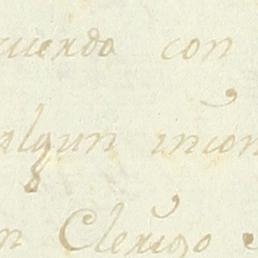 cuerdo con
algun incon
n Clerigo